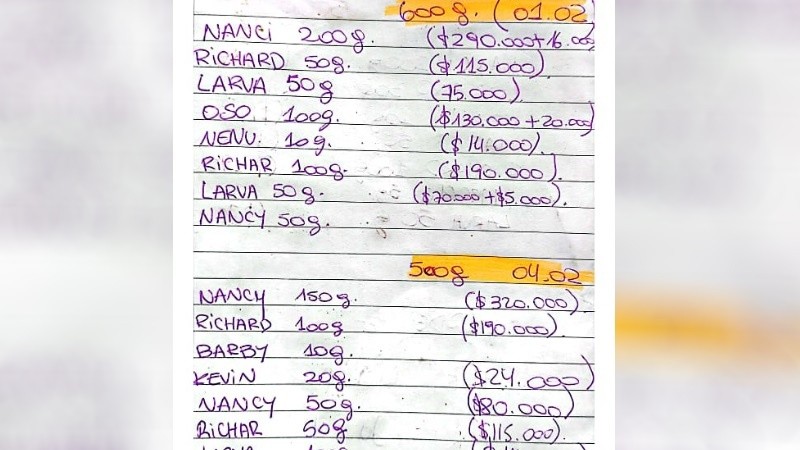 600g. (01.02
NANCi 200g. ($290.000+16.000
RiCHARD 50g. ($115.000).
LARVA 50g (75.000).
OSO 100g. ($130.000+20.000)
NENU. 10g. ($14.000).
RiCHAR 100g. ($190.000).
LARVA 50g. ($70.000+$5.000).
NANCY 50g.
500g 04.02
NANCY 150g. ($320.000)
RiCHARD 100g ($190.000).
BARBY 10g.
KEViN 20g. ($24.000)
NANCY 50g. ($80.000)
RiCHAR 50g ($115.000).